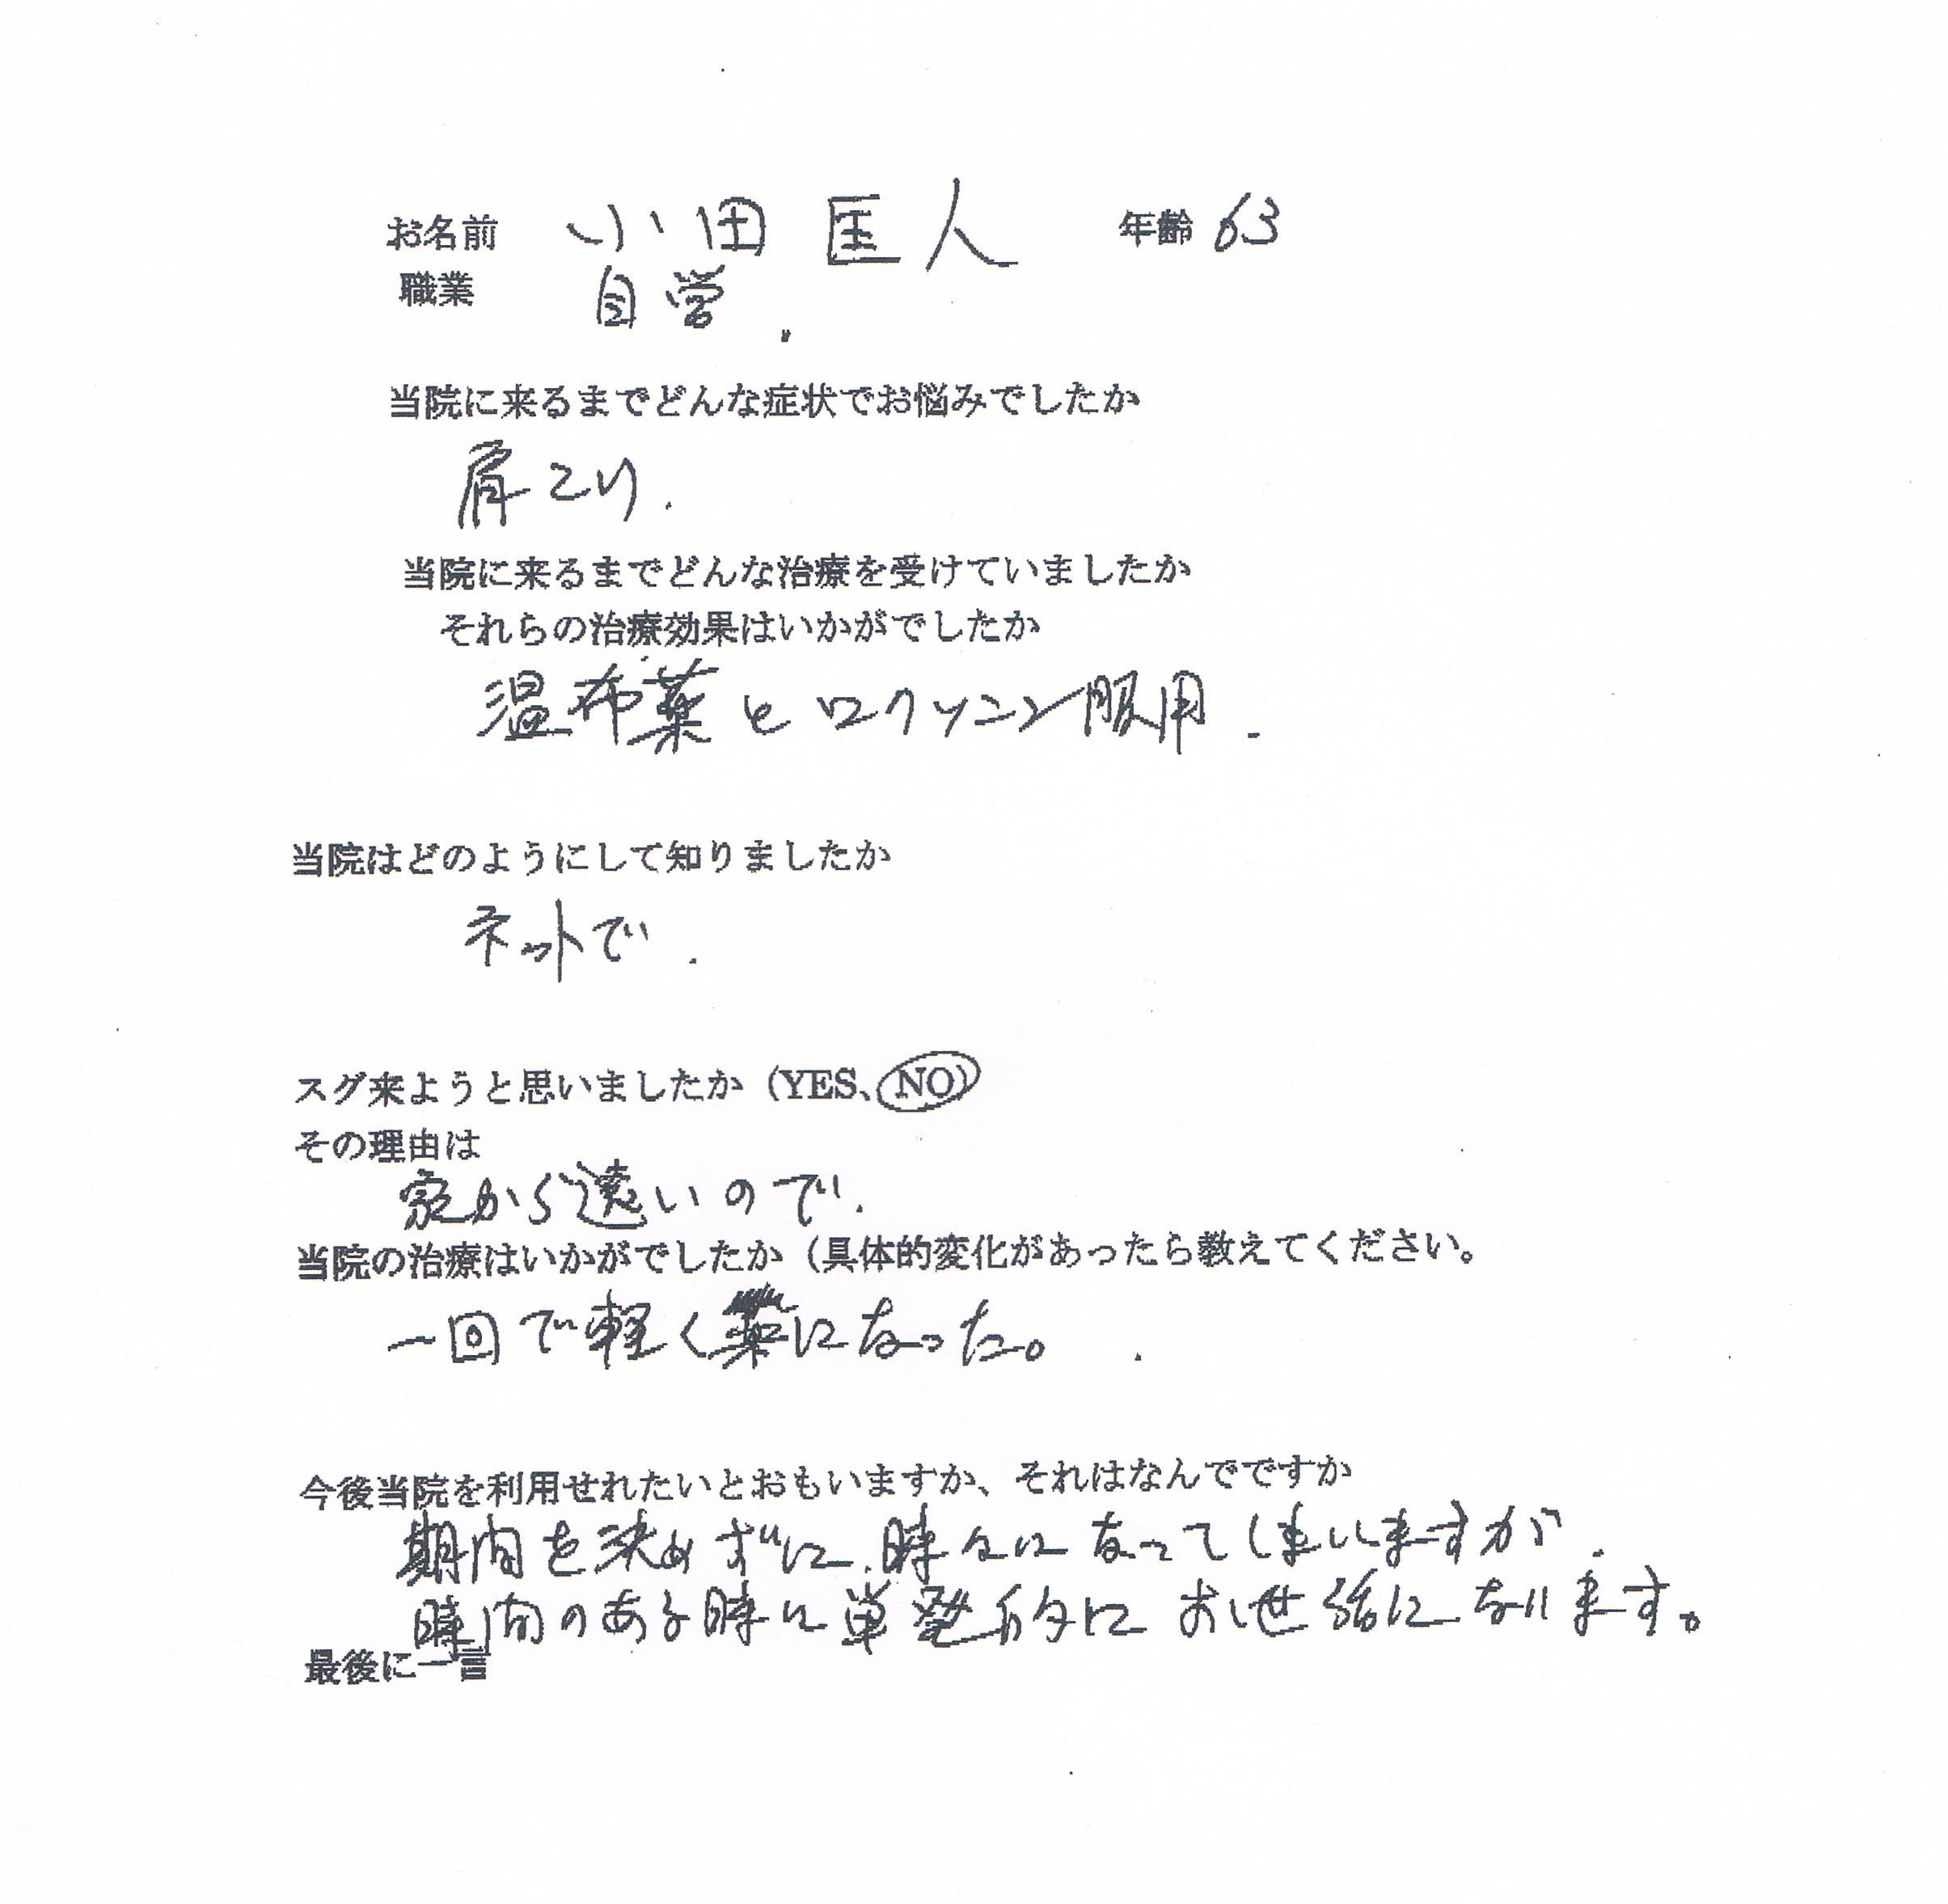 お名前 小田 匡人 年齢 63
職業 自営.
当院に来るまでどんな症状でお悩みでしたか
肩こり.
当院に来るまでどんな治療を受けていましたか
それらの治療効果はいかがでしたか
温布薬とロクソニン服用.
当院はどのようにして知りましたか
ネットで.
スグ来ようと思いましたか（YES、NO）
その理由は
家から遠いので.
当院の治療はいかがでしたか（具体的変化があったら教えてください。
一回で軽く楽になった。
今後当院を利用せれたいとおもいますか、それはなんでですか
期間を決めずに、時々になってしまいますが.
時間のある時に単発的にお世話になります。
最後に一言